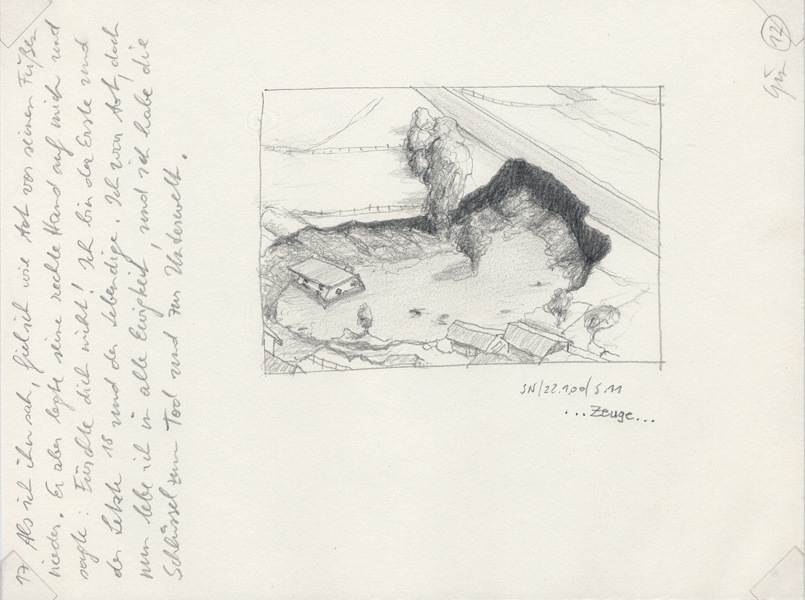 17 Als ich ihn sah, fiel ich wie tot vor seinen Füßen
nieder. Er aber legte seine rechte Hand auf mich und
sagte: Fürchte dich nicht! Ich bin der Erste und
der Letzte 18 und der Lebendige. Ich war tot, doch
nun lebe ich in alle Ewigkeit, und ich habe die
Schlüssel zum Tod und zur Unterwelt.
SN/22.1.00/S 11
...Zeuge...
17